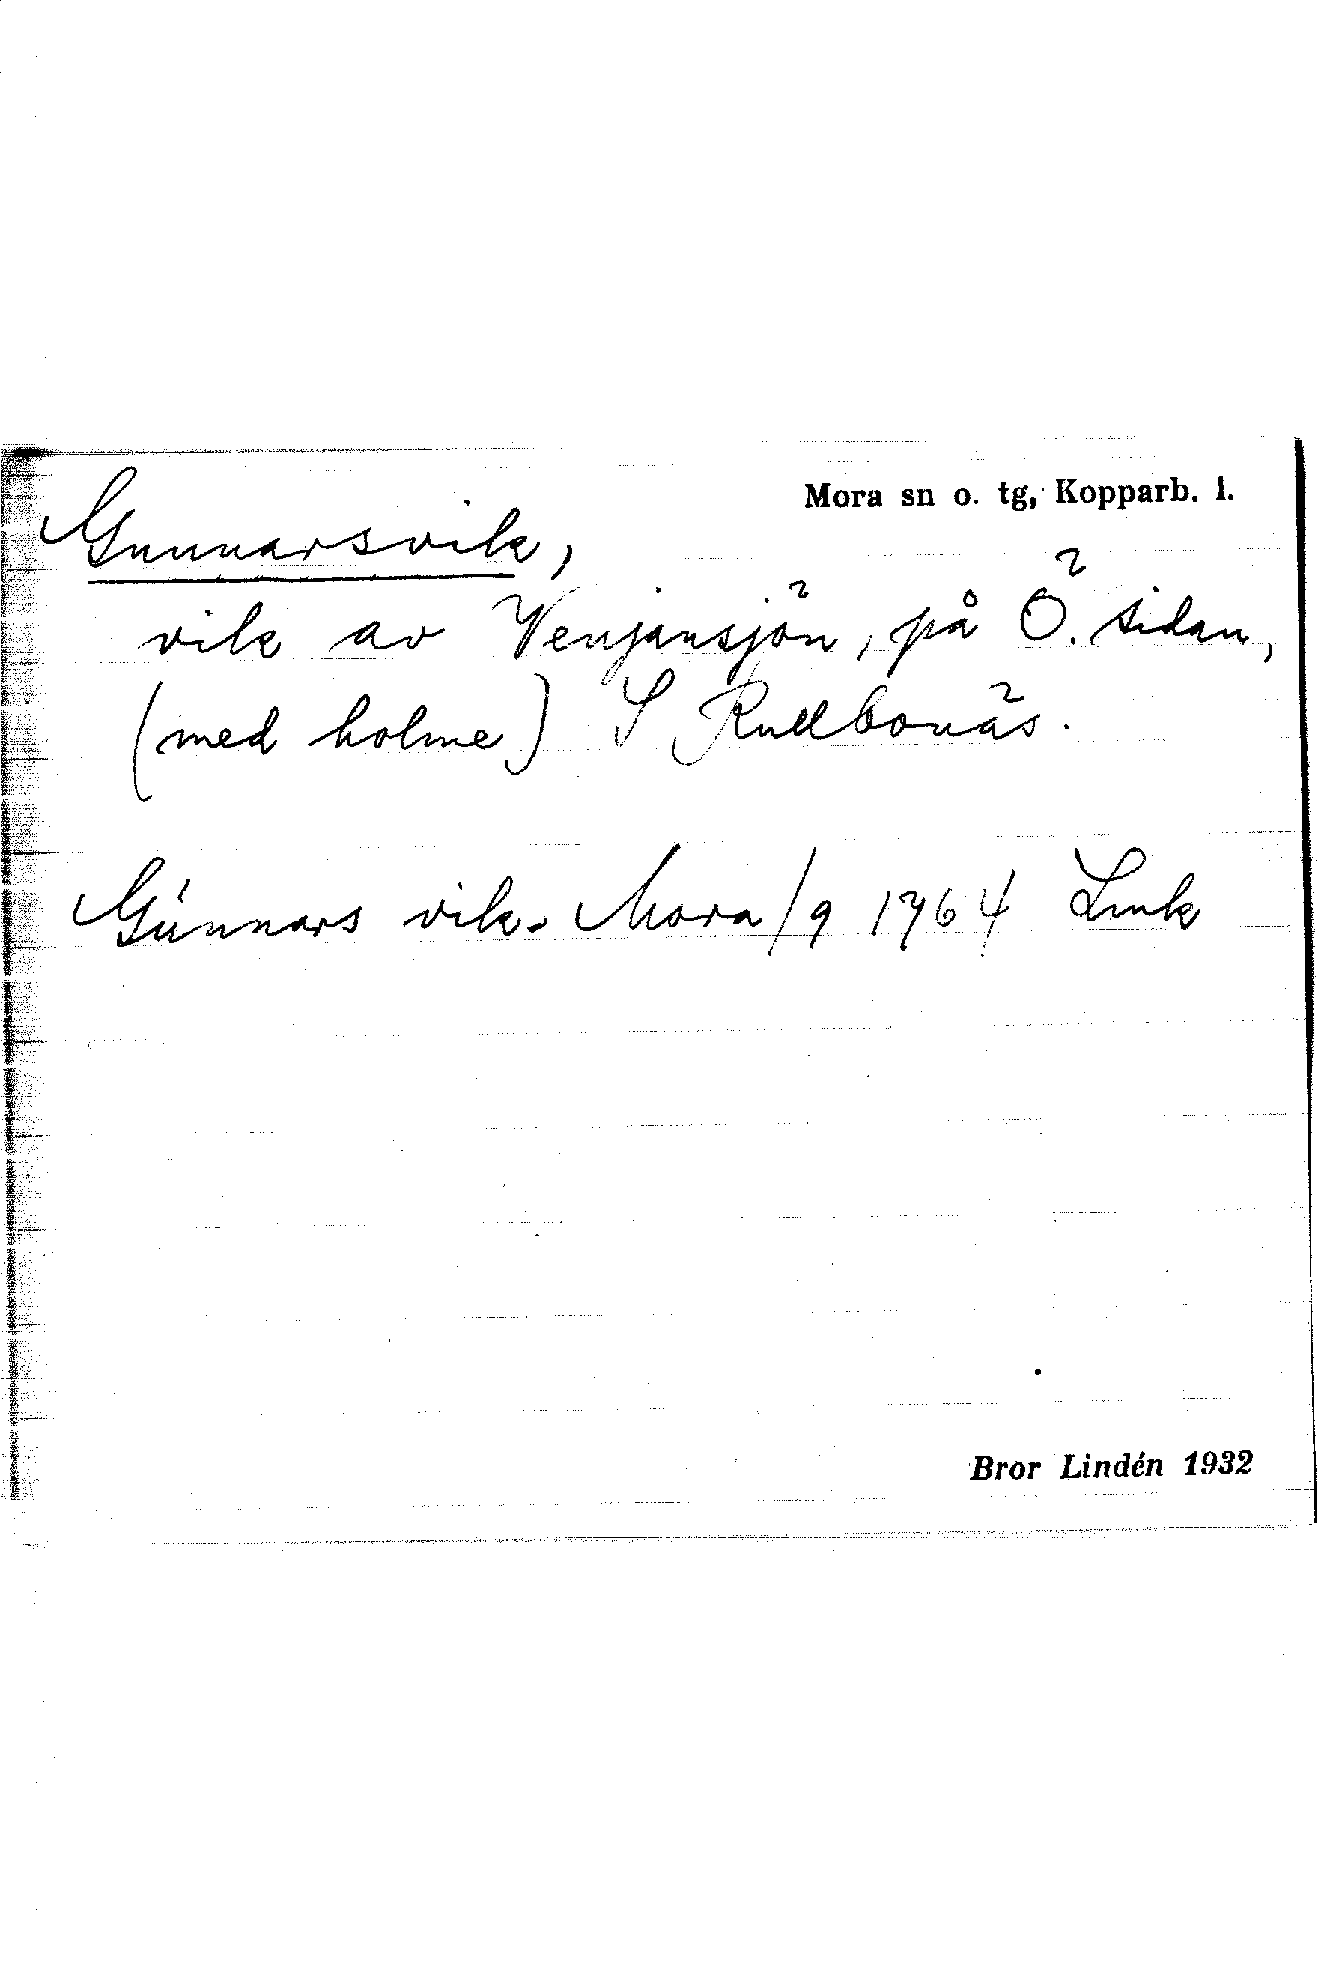 Mora sn o. tg, Kopparb. l.
Gunnarsvik,
vik av Venjansjön, på Ö. sidan,
(med holme) S Rullbonäs.
Gúnnars vik. Mora/9 1764 Lmk
Bror Lindén 1932